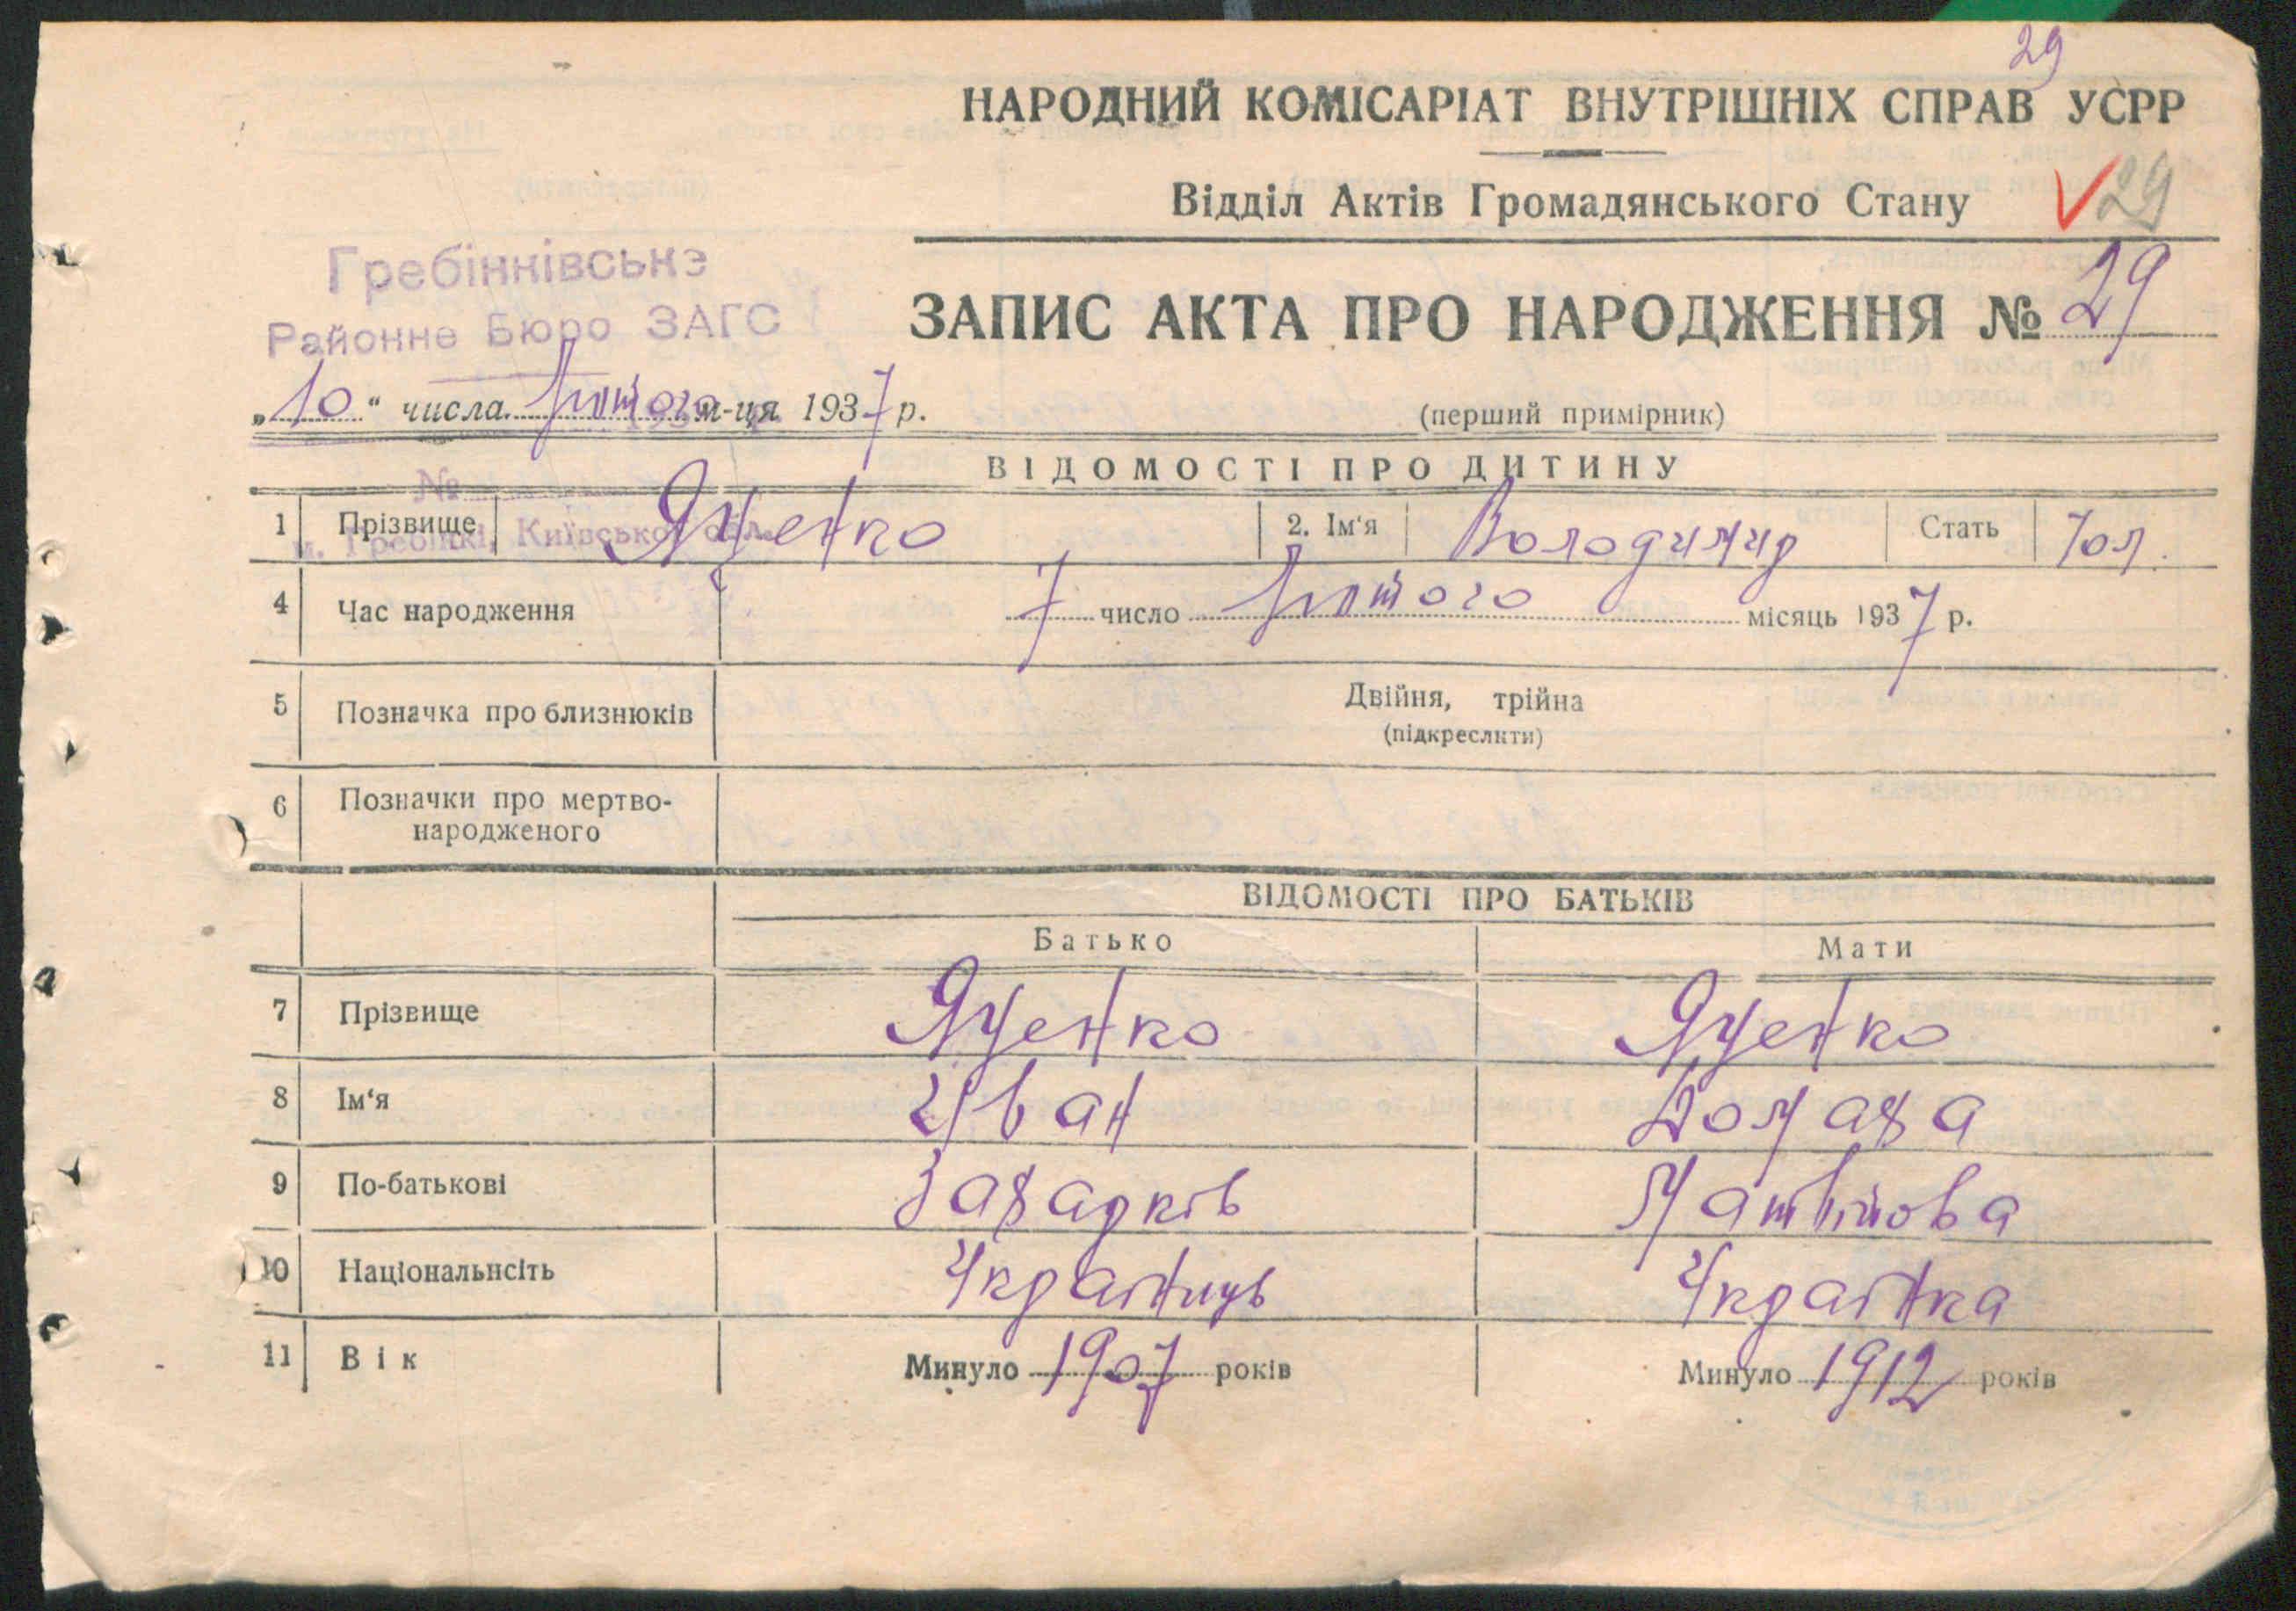 29
НАРОДНИЙ КОМІСАРІАТ ВНУТРІШНІХ СПРАВ УСРР
Відділ Актів Громадянського Стану
29
Гребінківське
Районне Бюро ЗАГС
ЗАПИС АКТА ПРО НАРОДЖЕННЯ № 29
„10“ числа лютого м-ця 1937 р.
(перший примірник)
№
м. Гребінки, Київської обл.
ВІДОМОСТІ ПРО ДИТИНУ
1 Прізвище Яценко 2. Ім'я Володимир Стать чол.
4 Час народження 7 число лютого місяць 1937 р.
5 Позначка про близнюків Двійня, трійна
(підкреслити)
6 Позначки про мертво-
народженого
ВІДОМОСТІ ПРО БАТЬКІВ
Батько Мати
7 Прізвище Яценко Яценко
8 Ім'я Іван Домаха
9 По-батькові Захарків Матвійова
10 Національнсіть Українець Українка
11 Вік Минуло 1907 років Минуло 1912 років